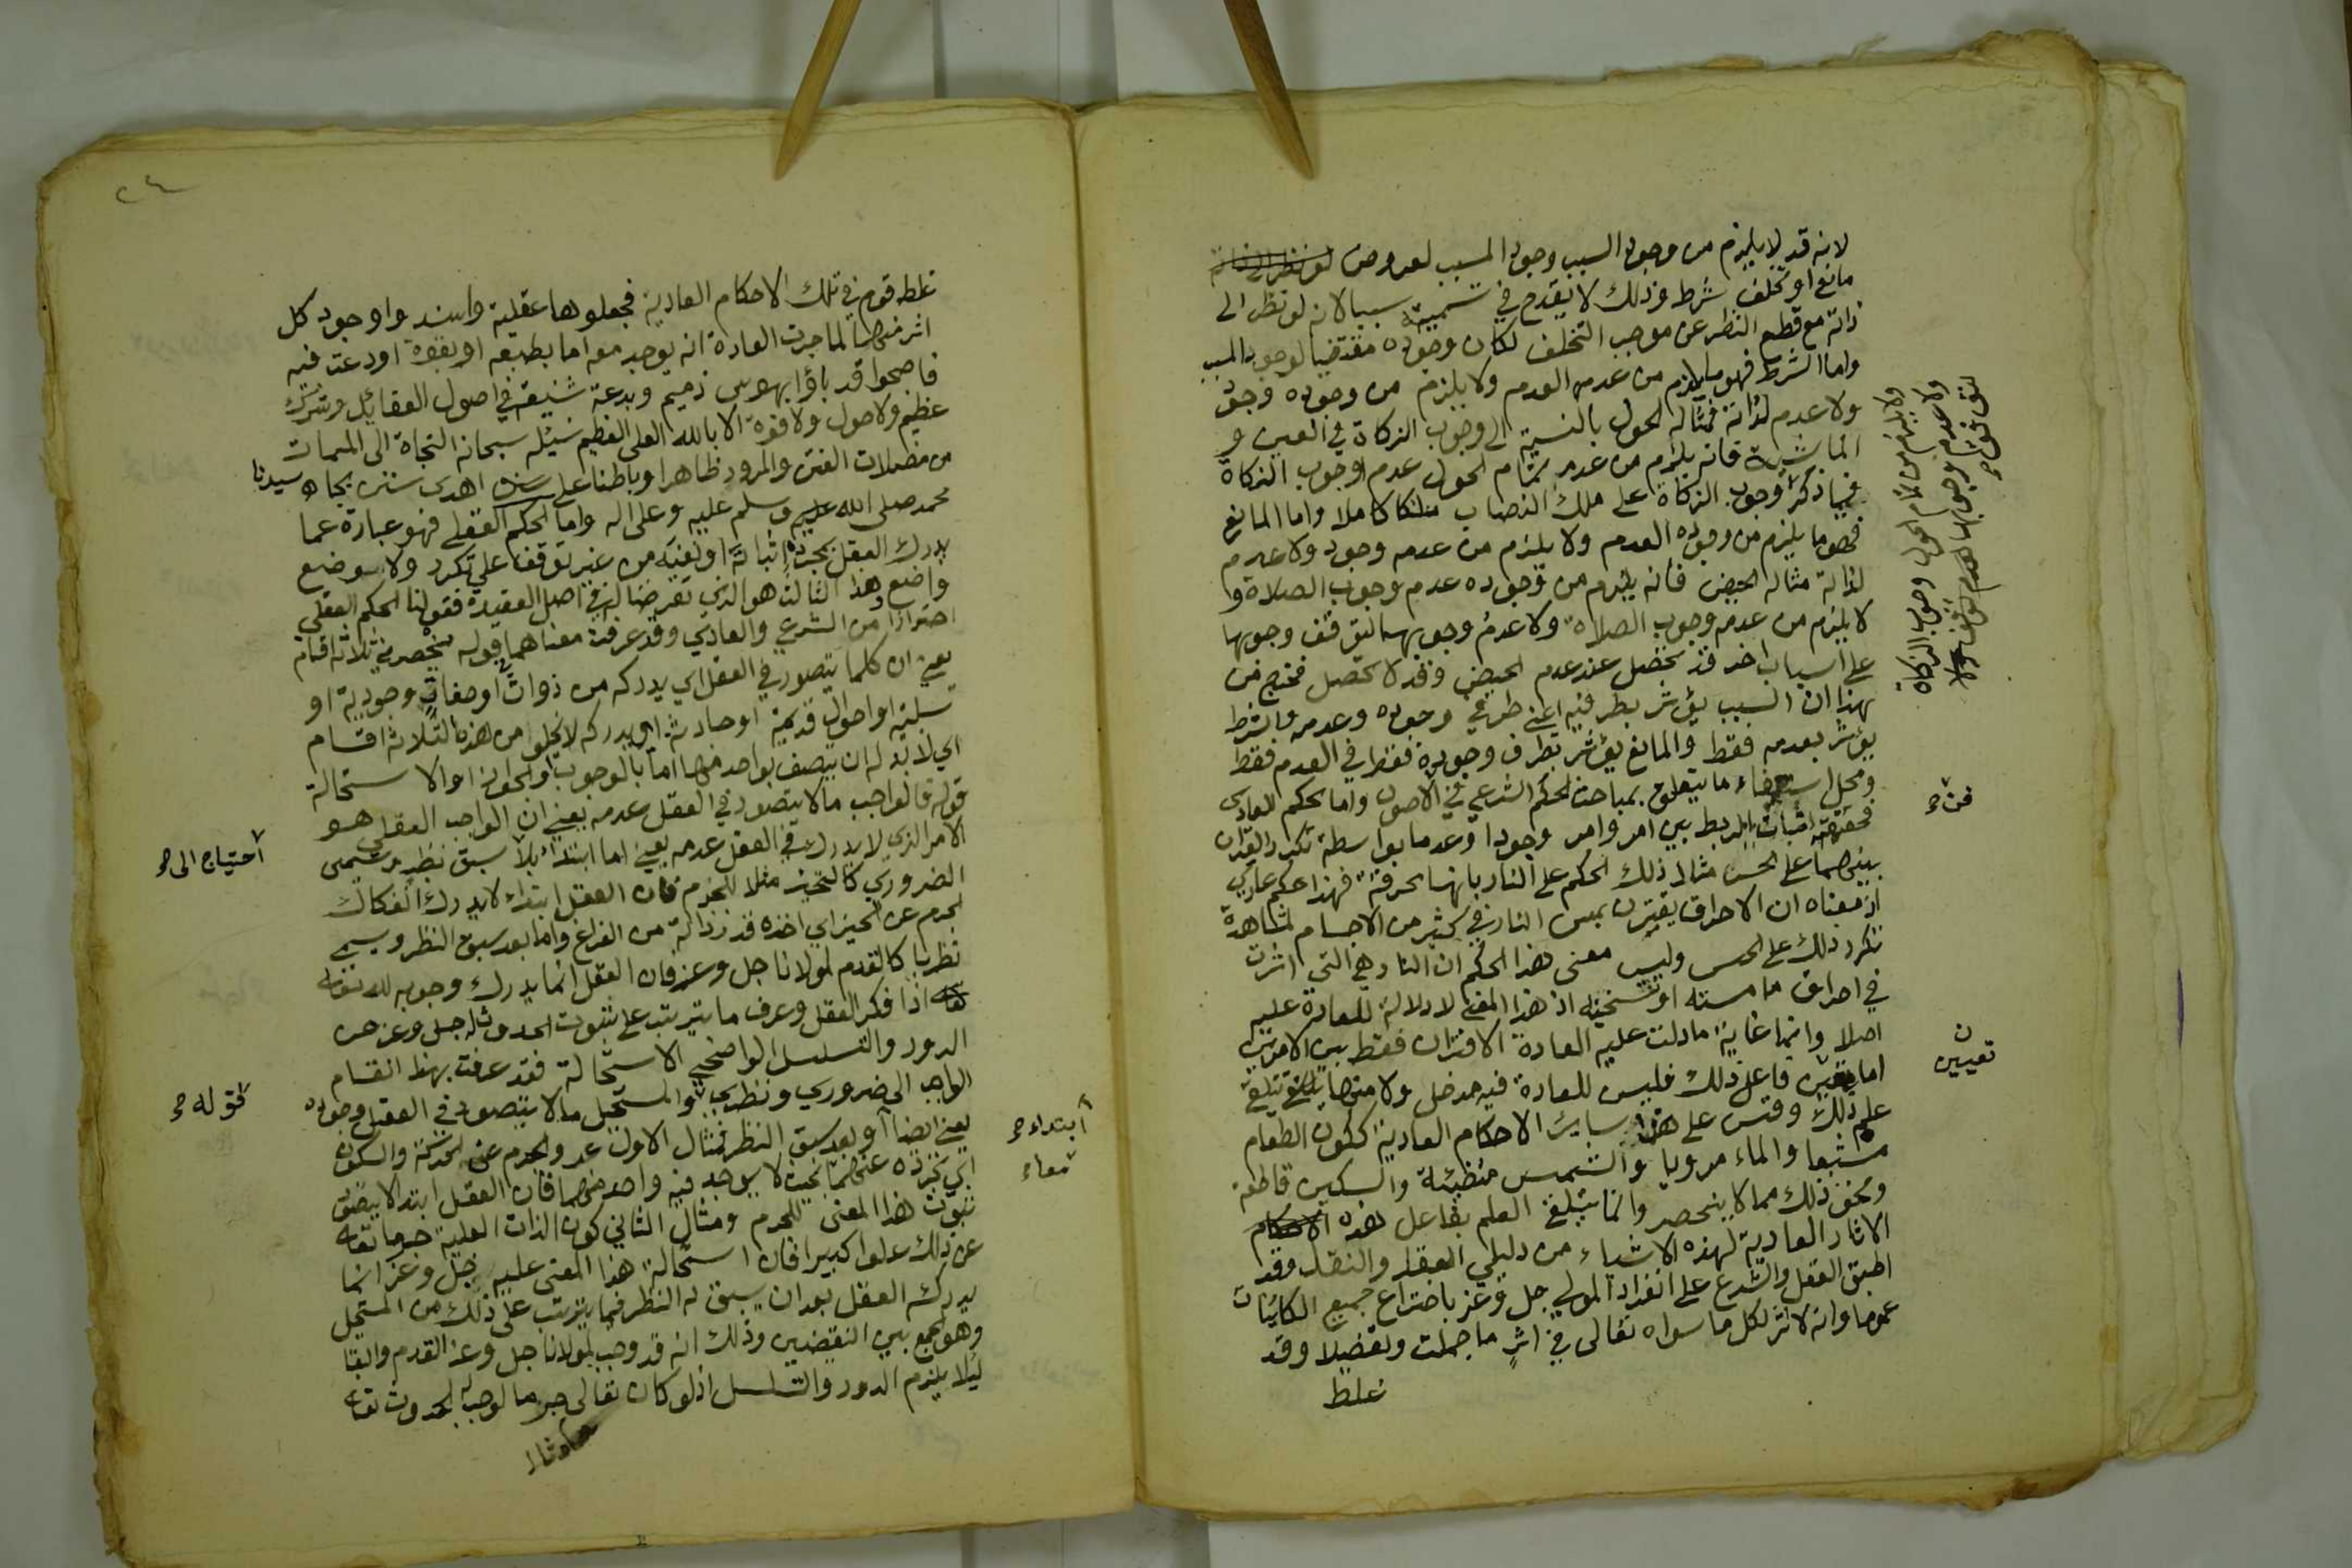 لانه قد لا يلزم من وجود السبب وجود المسبب لعروض
مانع او تخلف شرط وذلك لا يقدح في تسميته سببا لانه لو نظر الى
ذاته مع قطع النظر عن موجب التخلف لكان وجوده مقتضيا لوجود المسبب
واما الشرط فهو ما يلزم من عدمه العدم ولا يلزم من وجوده وجود
ولا عدم لذاته فمثاله الحول بالنسبة الى وجوب الزكاة في العين و
الماشية فانه يلزم من عدم تمام الحول عدم وجوب الزكاة
فيما ذكر وجوب الزكاة على ملك النصاب ملكا كاملا واما المانع
فهو ما يلزم من وجوده العدم ولا يلزم من عدمه وجود ولا عدم
لذاته مثاله الحيض فانه يلزم من وجوده عدم وجوب الصلاة و
لا يلزم من عدمه وجوب الصلاة ولا عدم وجوبها لتوقف وجوبها
على اسباب اخر قد تحصل عند عدم الحيض وقد لا تحصل فخرج من
بهذا ان السبب يؤثر بطرفيه اعني طرفي وجوده وعدمه والشرط
يؤثر بعدمه فقط والمانع يؤثر بطرف وجوده فقط في العدم فقط
ومحل استيفاء ما يتعلق بمباحث الحكم الشرعي في الاصول واما الحكم العادى
فحقيقته اثبات الربط بين امر وامر وجودا وعدما بواسطة تكرر القران
بينهما على الحس مثال ذلك الحكم على النار بانها محرقة فهذا حكم عادي
اذ معناه ان الاحراق يقترن بمس النار في كثير من الاجسام لمشاهدة
تكرر ذلك على الحس وليس معنى هذا الحكم ان النار هي التي اثرت
في احراق ما مسته او تسخينه اذ هذا المعنى لا دلالة للعادة عليه
اصلا وانما غاية ما دلت عليه العادة الاقتران فقط بين الامرين
اما تعيين فاعل ذلك فليس للعادة فيه مدخل ولا منها يتلقى
علم ذلك وقس على هذا سائر الاحكام العادية ككون الطعام
مشبعا والماء مرويا والشمس مضيئة والسكين قاطعة
ونحو ذلك مما لا ينحصر وانما يتلقى العلم بفاعل هذه
الاثار العادية لهذه الاشياء من دليلي العقل والنقل وقد
اطبق العقل والشرع على انفراد المولى جل وعز باختراع جميع الكائنات
عموما وانه لا اثر لكل ما سواه تعالى في اثر ما جملة وتفصيلا وقد
غلط
ولا يلزم من تمام الحول وجوب الزكاة
ولا عدم وجوبها
لتوقف
تعيين
٢٤
غلط قوم في تلك الاحكام العادية فجعلوها عقلية واسندوا وجود كل
اثر منها لما جرت العادة انه يوجد معه اما بطبعه او بقوة اودعت فيه
فاصبحوا قد باؤا بهوس ذميم وبدعة شنيعة في اصول العقائد وشرك
عظيم ولا حول ولا قوة الا بالله العلي العظيم نسئله سبحانه النجاة الى الممات
من مضلات الفتن والمرور ظاهرا وباطنا على سنن اهدى سنن بجاه سيدنا
محمد صلى الله عليه وسلم عليه وعلى اله واما الحكم العقلي فهو عبارة عما
يدرك العقل بجرده اثباته او نفيه من غير توقف على تكرر ولا وضع
واضع وهذا الثالث هو الذي تعرضنا له في اصل العقيدة فقولنا الحكم العقلي
احترازا من الشرعي والعادي وقد عرفت معناهما قوله ينحصر في ثلاثة اقسام
يعني ان كلما يتصور في العقل اي يدركه من ذوات او صفات وجودية او
سلبية او احوال قديمة او حادثة اي يدركه لا يخلو من هذه الثلاثة اقسام
اي لا بد له ان يتصف بواحد منها اما بالوجوب او الجواز او الاستحالة
قوله فالواجب ما لا يتصور في العقل عدمه يعني ان الواجب العقلي هو
الامر الذي لا يدرك في العقل عدمه يعني اما ابتداء بلا سبق نظر ويسمى
الضروري كالتحيز مثلا للجرم فان العقل ابتداء لا يدرك انفكاك
الجرم عن الحيز اي اخذه قدر ذاته من الفراغ واما بعد سبق النظر ويسمى
نظريا كالقدم لمولانا جل وعز فان العقل انما يدرك وجوبه له تعالى
اذا فكر العقل وعرف ما يترتب على ثبوت الحدوث له جل وعز من
الدور والتسلسل الواضحي الاستحالة فقد عرفت بهذا انقسام
الواجب الى ضروري ونظري والمستحيل ما لا يتصور في العقل وجوده
يعني ايضا او بعد سبق النظر فمثال الاول عرو الجرم عن الحركة والسكون
اي تجرده عنهما بحيث لا يوجد فيه واحد منهما فان العقل ابتداء لا يتصور
ثبوت هذا المعنى للجرم ومثال الثاني كون الذات العلية جرما تعالى
عن ذلك علوا كبيرا فان استحالة هذا المعنى عليه جل وعز انما
يدركه العقل بعد ان يسبق له النظر فيما يترتب على ذلك من المستحيل
وهو الجمع بين النقيضين وذلك انه قد وجب لمولانا جل وعز القدم والبقا
ليلا يلزم الدور والتسلسل اذ لو كان تعالى جرما لوجب له الحدوث تعالى
احتياج الى
قوله
ابتداء